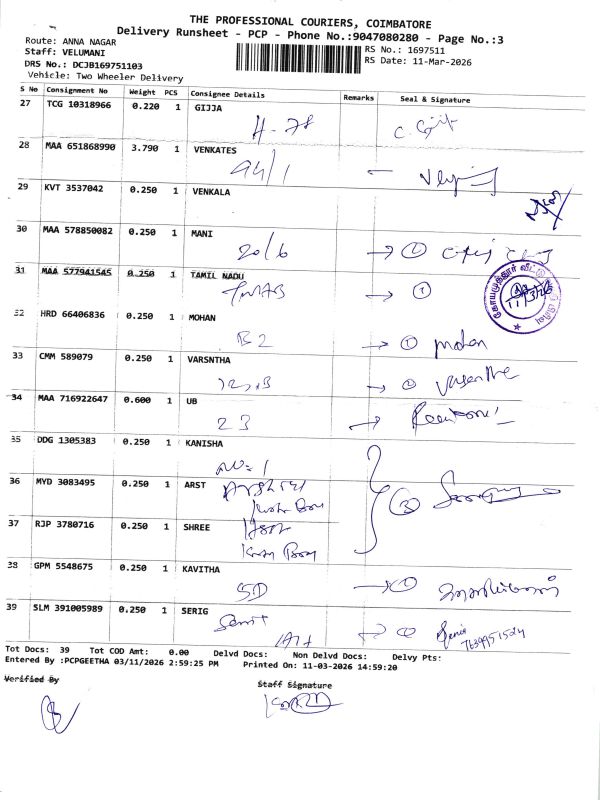 THE PROFESSIONAL COURIERS, COIMBATORE
Delivery Runsheet - PCP - Phone No.:9047080280 - Page No.:3
Route: ANNA NAGAR
Staff: VELUMANI
DRS No.: DCJB169751103
Vehicle: Two Wheeler Delivery
RS No.: 1697511
RS Date: 11-Mar-2026
S No Consignment No Weight PCS Consignee Details Remarks Seal & Signature
27 TCG 10318966 0.220 1 GIJJA
H-78
28 MAA 651868990 3.790 1 VENKATES
94/1
29 KVT 3537042 0.250 1 VENKALA
30 MAA 578850082 0.250 1 MANI
20/6 → ①
31 MAA 577941545 0.250 1 TAMIL NADU
TNHB → ①
11/3/26
32 HRD 66406836 0.250 1 MOHAN
B2 → ① mohan
33 CMM 589079 0.250 1 VARSNTHA
→ ① Vasantha
34 MAA 716922647 0.600 1 UB
23 →
35 DDG 1305383 0.250 1 KANISHA
NO: 1
36 MYD 3083495 0.250 1 ARST
③
37 RJP 3780716 0.250 1 SHREE
38 GPM 5548675 0.250 1 KAVITHA
5D → ①
39 SLM 391005989 0.250 1 SERIG
→ ①
7639951524
Tot Docs: 39 Tot COD Amt: 0.00 Delvd Docs: Non Delvd Docs: Delvy Pts:
Entered By :PCPGEETHA 03/11/2026 2:59:25 PM Printed On: 11-03-2026 14:59:20
Verified By Staff Signature